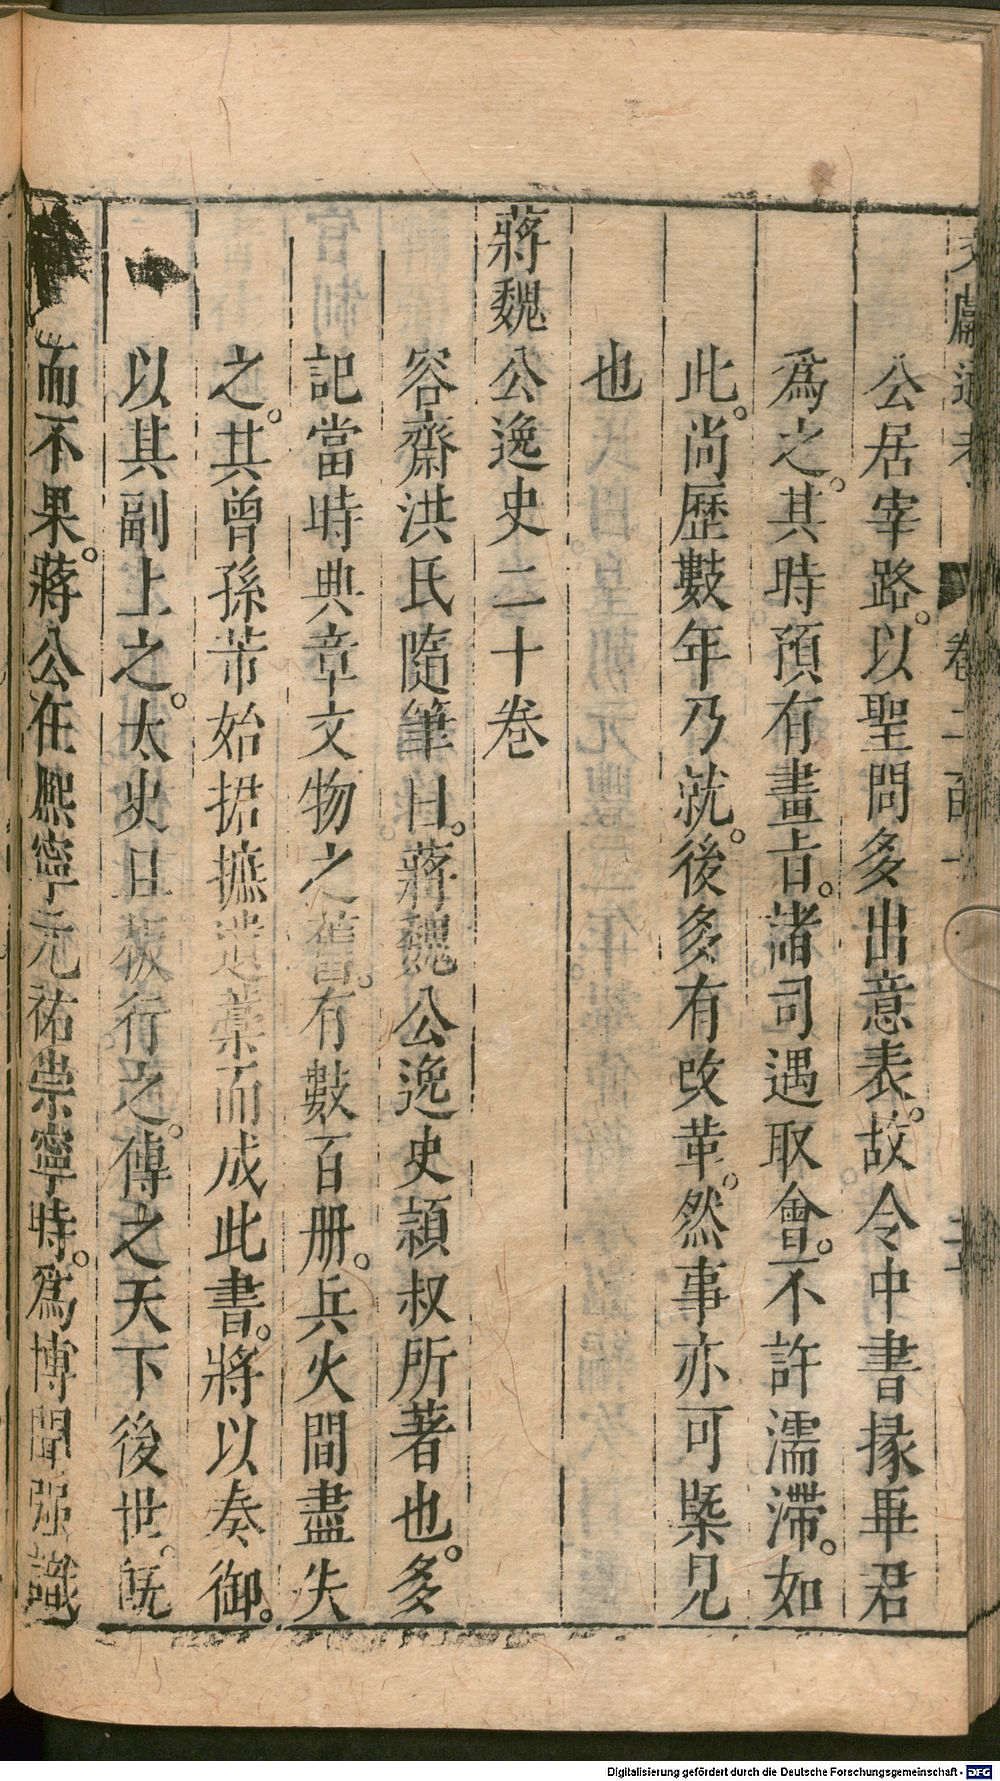 文獻通考 卷二百一
公居宰路。以聖問多出意表。故令中書掾畢君
爲之。其時預有畫旨。諸司遇取會。不許濡滯。如
此。尚歷數年乃就。後多有改革。然事亦可槩見
也
蔣魏公逸史二十卷
容齋洪氏隨筆曰。蔣魏公逸史潁叔所著也。多
記當時典章文物之舊。有數百册。兵火間盡失
之。其曾孫芾始捃摭遺藁而成此書。將以奏御。
以其副上之。太史且板行之。傳之天下後世。旣
而不果。蔣公在熈寧元祐崇寧時。爲博聞强識
Digitalisierung gefördert durch die Deutsche Forschungsgemeinschaft - DFG